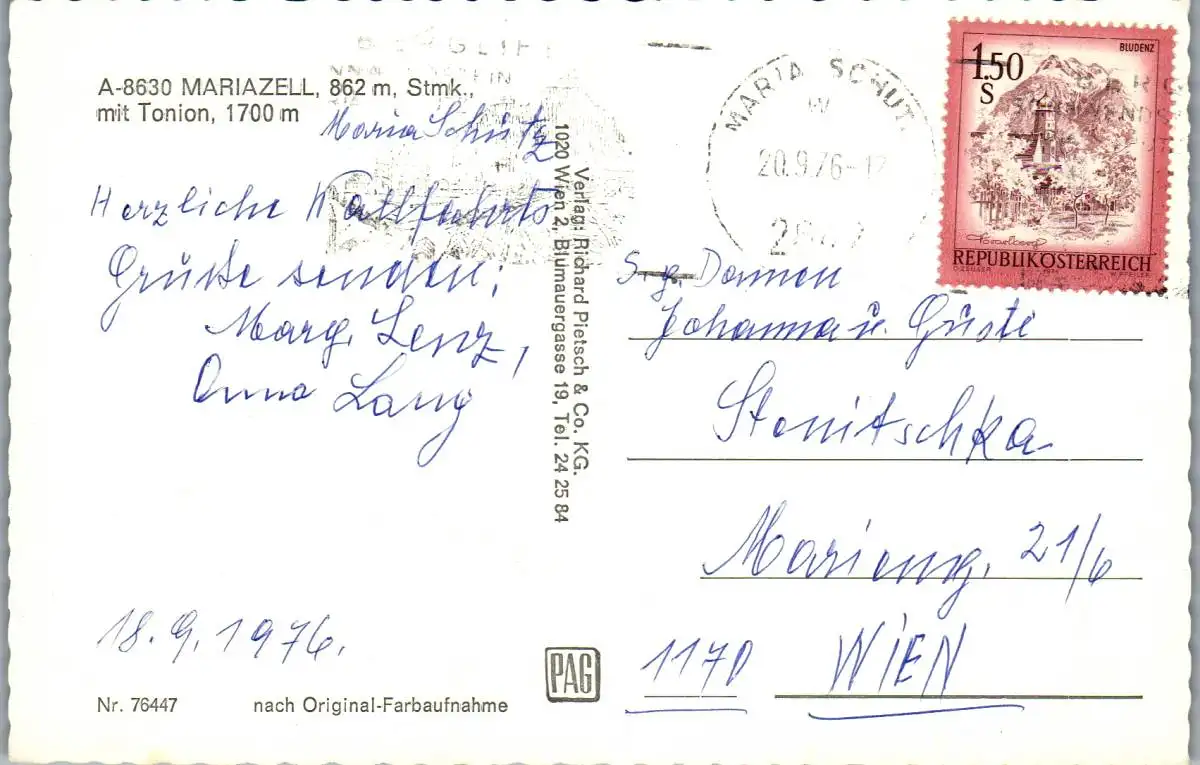 A-8630 MARIAZELL, 862 m, Stmk.,
mit Tonion, 1700 m
Maria Schutz
Herzliche Wallfahrts
Grüße senden:
Marg. Lenz,
Anna Lang
18.9.1976.
Nr. 76447 nach Original-Farbaufnahme
Verlag: Richard Pietsch & Co. KG.
1020 Wien 2, Blumauergasse 19, Tel. 24 25 84
PAG
MARIA SCHUTZ
20.9.76-12
1.50
S
BLUDENZ
REPUBLIK ÖSTERREICH
Sg. Damen
Johanna u. Guste
Stanitschka
Marieng. 21/6
1170 WIEN